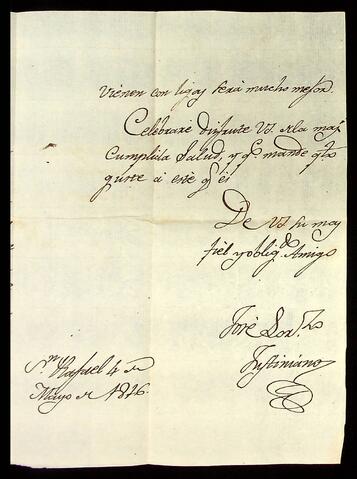 vienen con ligas será mucho mejor.
Celebraré disfrute Vd. de la mas
cumplida salud, y qe. mande qto.
guste á este qe. es
De Vd. su mas
fiel y oblig.do Amigo
José Lor.zo
Justiniano
Sn. Rafael 4 de
Mayo de 1816.